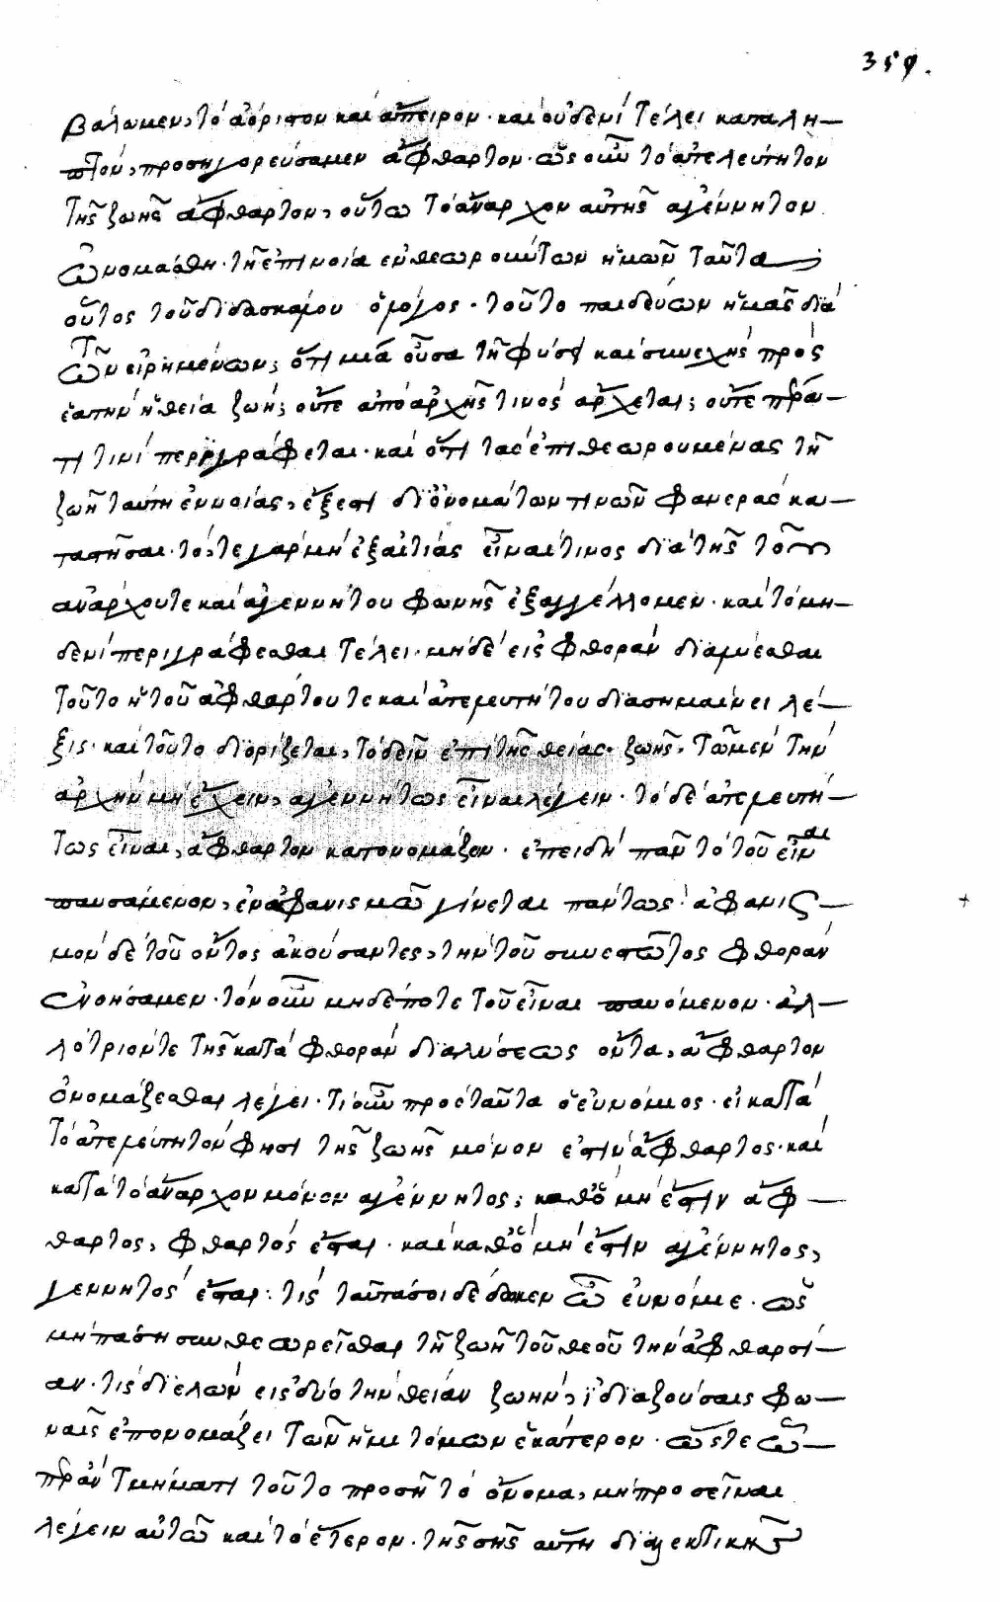 359.
βάλωμεν, τὸ ἀόριστον καὶ ἄπειρον· καὶ οὐδενὶ τέλει καταλη-
πτὸν, προσηγορεύσαμεν ἄφθαρτον· ὡς οὖν τὸ ἀτελεύτητον
τῆς ζωῆς ἄφθαρτον, οὕτω τὸ ἄναρχον αὐτῆς ἀγέννητον
ὠνομάσθη· τῇ ἐπινοίᾳ ἐνθεωρούντων ἡμῶν ταῦτα
οὗτος τοῦ διδασκάλου ὁ λόγος· τοῦτο παιδεύων ἡμᾶς διὰ
τῶν εἰρημένων, ὅτι μία οὖσα τῇ φύσει καὶ συνεχὴς πρὸς
ἑαυτὴν ἡ θεία ζωὴ, οὔτε ἀπὸ ἀρχῆς τινὸς ἄρχεται, οὔτε πέρα-
τι τινὶ περιγράφεται· καὶ ὅτι τὰς ἐπιθεωρουμένας τῇ
ζωῇ ταύτῃ ἐννοίας, ἔξεστι δι' ὀνομάτων τινῶν φανερὰς κα-
ταστῆσαι· τό, τε γὰρ μὴ ἐξ αἰτίας εἶναι τινος διὰ τῆς τοῦ
ἀνάρχου τε καὶ ἀγεννήτου φωνῆς ἐξαγγέλλομεν· καὶ τὸ μη-
δενὶ περιγράφεσθαι τέλει· μηδὲ εἰς φθορὰν διαλύεσθαι
τοῦτο ἡ τοῦ ἀφθάρτου τε καὶ ἀτελευτήτου διασημαίνει λέ-
ξις· καὶ τοῦτο διορίζεται, τὸ δεῖν ἐπὶ τῆς θείας ζωῆς, τῷ μὲν τὴν
ἀρχὴν μὴ ἔχειν, ἀγεννήτως εἶναι λέγειν· τὸ δὲ ἀτελευτή-
τως εἶναι, ἄφθαρτον κατονομάζειν· ἐπειδὴ πᾶν τὸ τοῦ εἶναι
παυσάμενον, ἐν ἀφανισμῷ γίνεται πάντως· ἀφανισ-
μὸν δὲ τοῦ ὄντος ἀκούσαντες, τὴν τοῦ συνεστῶτος φθορὰν
ἐνοήσαμεν· τὸν οὖν μηδέποτε τοῦ εἶναι παυόμενον· ἀλ-
λότριόν τε τῆς κατὰ φθορὰν διαλύσεως ὄντα, ἄφθαρτον
ὀνομάζεσθαι λέγει· τί οὖν πρὸς ταῦτα ὁ εὐνόμιος· εἰ κατὰ
τὸ ἀτελεύτητόν φησι τῆς ζωῆς μόνον ἐστὶν ἄφθαρτος· καὶ
κατὰ τὸ ἄναρχον μόνον ἀγέννητος, καθὸ μὴ ἔστιν ἄφ-
θαρτος, φθαρτὸς ἔσται· καὶ καθὸ μὴ ἔστιν ἀγέννητος,
γεννητὸς ἔσται· τίς ταῦτά σοι δέδωκεν ὦ εὐνόμιε· ὡς
μὴ πάσῃ συνθεωρεῖσθαι τῇ ζωῇ τοῦ θεοῦ τὴν ἀφθαρσί-
αν· τίς διελὼν εἰς δύο τὴν θείαν ζωὴν, ἰδιαζούσαις φω-
ναῖς ἐπονομάζει τῶν ἡμιτόμων ἑκάτερον· ὥστε ᾧ-
περ ἂν τμήματι τοῦτο προσῇ τὸ ὄνομα, μὴ προσεῖναι
λέγειν αὐτῷ καὶ τὸ ἕτερον· τῆς σῆς αὕτη διαλεκτικῆς